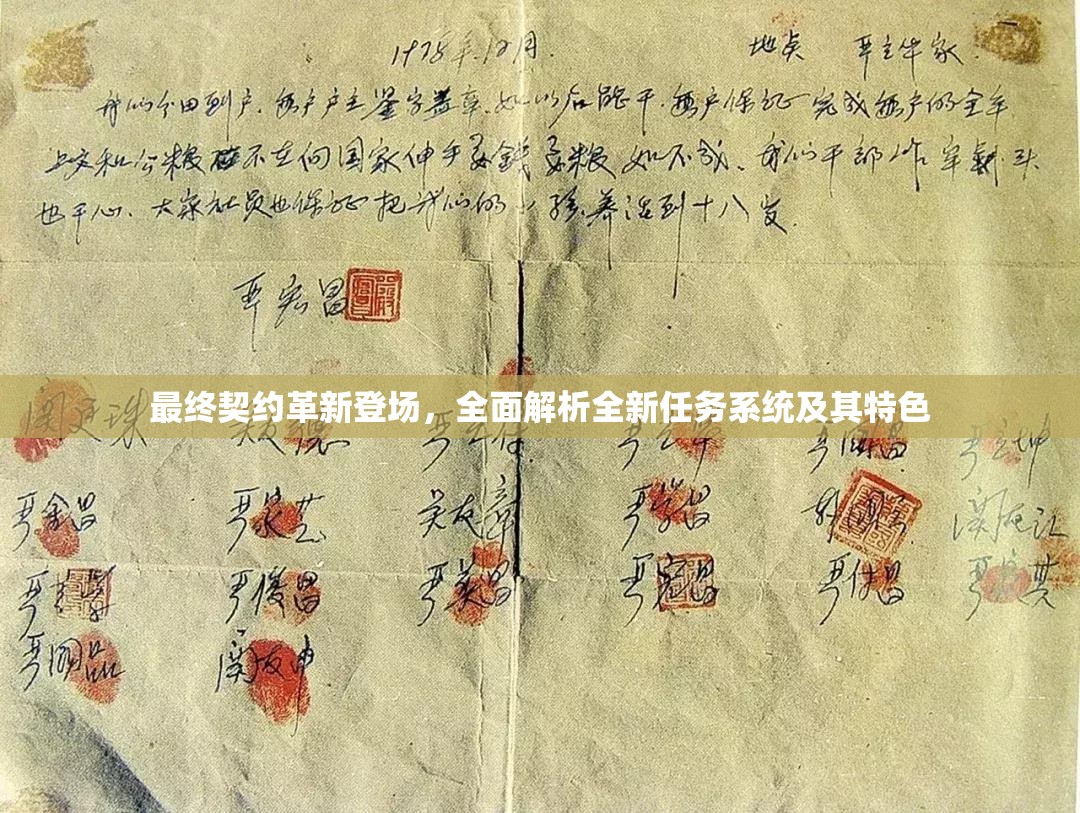 1978年12月. 地点 严立华家.
我们分田到户.每户户主鉴字盖章.如以后能干.每户保证完成每户的全年
上交和公粮不在向国家伸手要钱要粮如不成.我们干部作牢剎头
也干心.大家社员也保证把我们的小孩养活到十八岁.
严宏昌
最终契约革新登场，全面解析全新任务系统及其特色
関廷珠 关友德 严立付 严立华 严国昌 严立坤
严金昌 严家芝 关友章 严学昌 韩国云 関友江
严立学 严俊昌 严美昌 严宏昌 严付昌 严家其
严國品 関友申